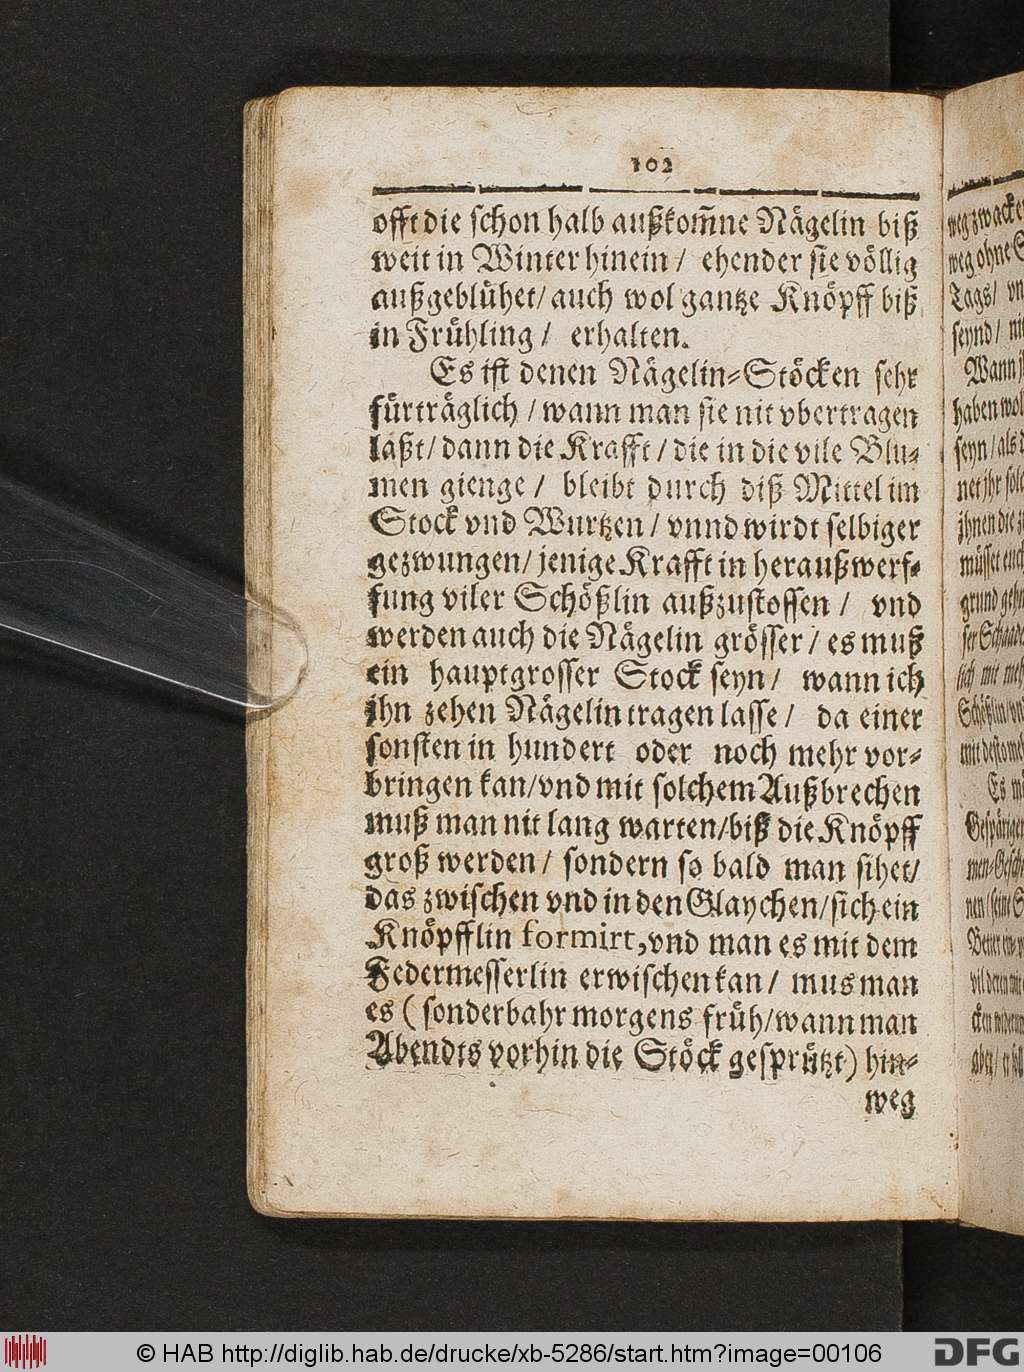 102
offt die schon halb außkom̃ne Nägelin biß
weit in Winter hinein / ehender sie völlig
außgeblühet/ auch wol gantze Knöpff biß
in Frühling / erhalten.
Es ist denen Nägelin-Stöcken sehr
fürträglich / wann man sie nit vbertragen
läßt/ dann die Krafft / die in die vile Blu-
men gienge / bleibt durch diß Mittel im
Stock vnd Wurtzen / vnnd wirdt selbiger
gezwungen/ jenige Krafft in heraußwerf-
fung viler Schößlin außzustossen / vnd
werden auch die Nägelin grösser / es muß
ein hauptgrosser Stock seyn / wann ich
jhn zehen Nägelin tragen lasse / da einer
sonsten in hundert oder noch mehr vor-
bringen kan/vnd mit solchem Außbrechen
muß man nit lang warten/biß die Knöpff
groß werden / sondern so bald man sihet/
das zwischen vnd in den Glaychen/sich ein
Knöpfflin formirt, vnd man es mit dem
Federmesserlin erwischen kan / mus man
es ( sonderbahr morgens früh/wann man
Abendts vorhin die Stöck gesprützt) hin-
weg
weg zwacke
weg ohne S
Tags/ vn
seynd / nit
Wann j
haben wol
seyn / als d
net jhr solc
jhnen die z
müsset euch
grund gehe
ser Schade
lich mit meh
Schößlin/vn
mit desto meh
Es m
© HAB http://diglib.hab.de/drucke/xb-5286/start.htm?image=00106
DFG